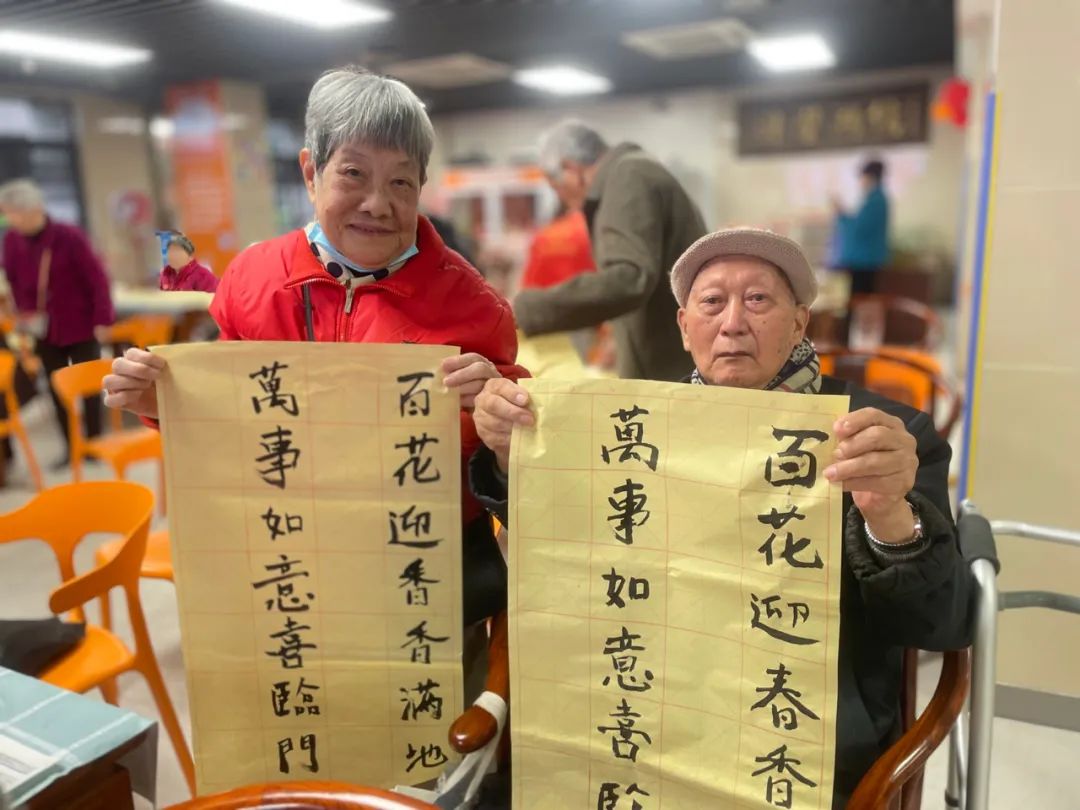 百花迎春香满地
萬事如意喜臨門
百花迎春香
萬事如意喜臨